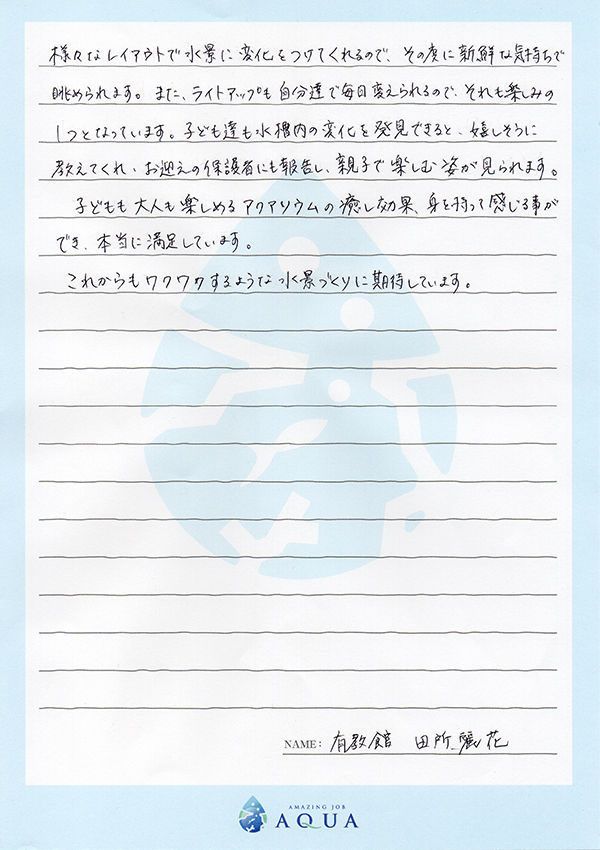 様々なレイアウトで水景に変化をつけてくれるので、その度に新鮮な気持ちで
眺められます。また、ライトアップも自分達で毎日変えられるので、それも楽しみの
1つとなっています。子ども達も水槽内の変化を発見できると、嬉しそうに
教えてくれ、お迎えの保護者にも報告し、親子で楽しむ姿が見られます。
子どもも大人も楽しめるアクアリウムの癒し効果、身を持って感じる事が
でき、本当に満足しています。
これからもワクワクするような水景づくりに期待しています。
NAME: 有教館 田所麗花
AMAZING JOB
AQUA